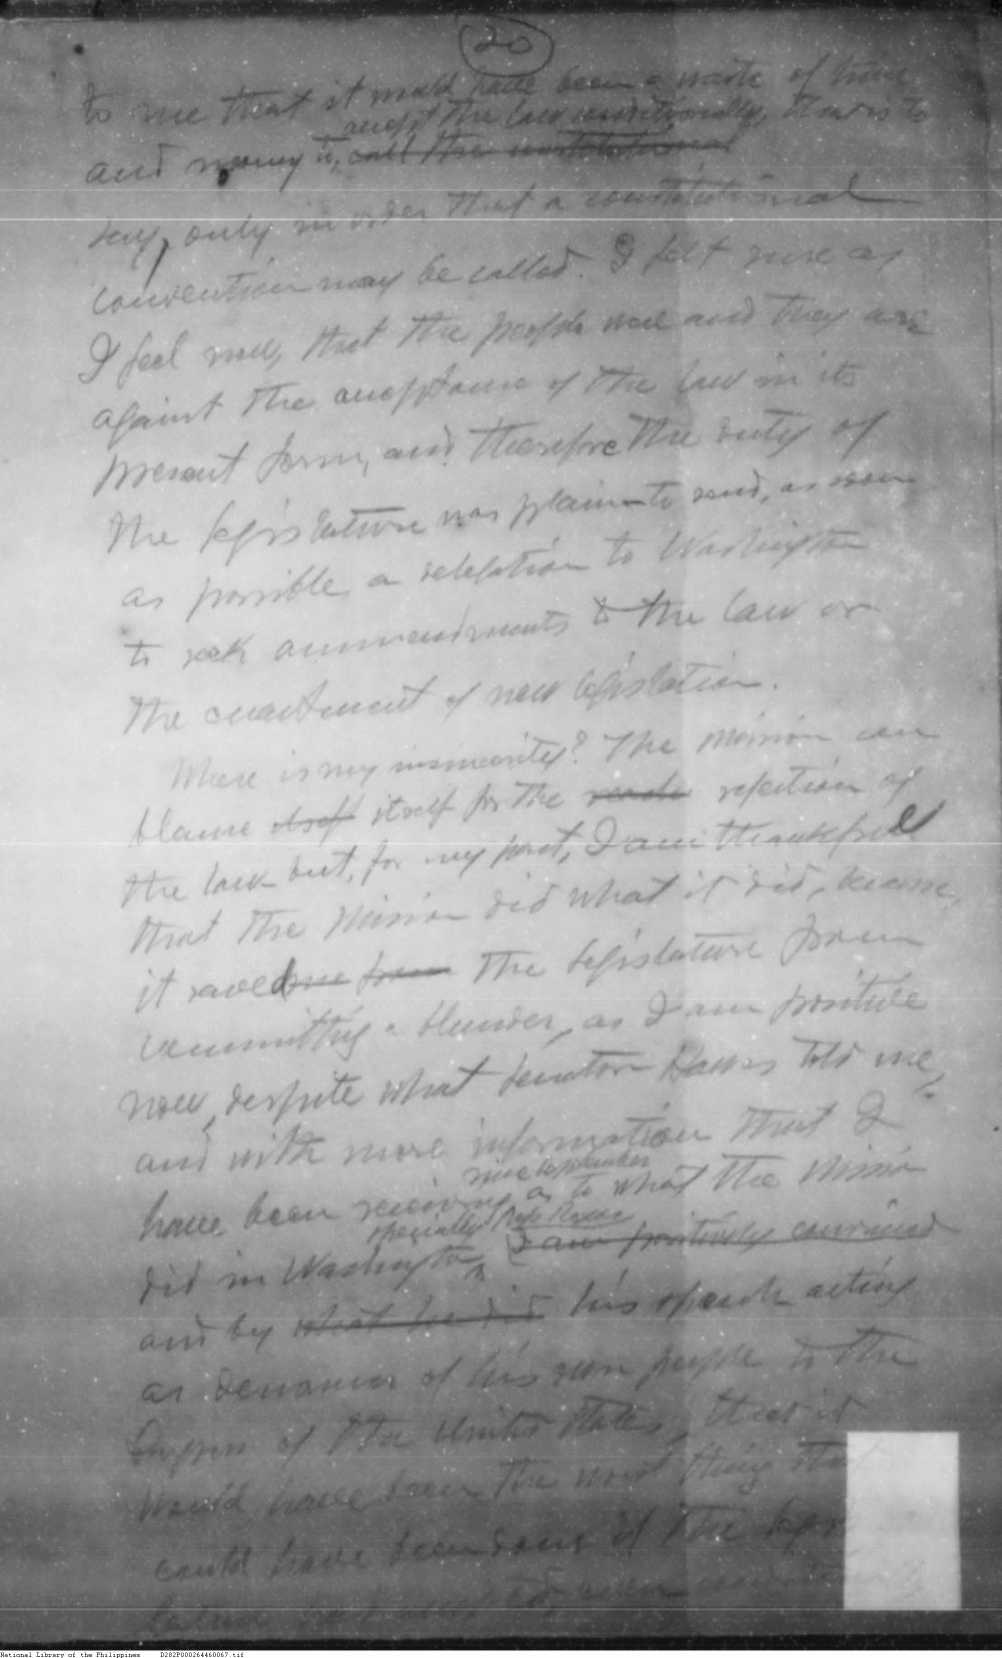 20
to me that it would have been a waste of time
accept the law conditionally, that is to
and money to, call the constitutional
say, only in order that a constitutional
convention may be called. I felt sure as
I feel now, that the people were and they are
against the acceptance of the law in its
present form, and therefore the duty of
the legislature was plain to send, as soon
as possible a delegation to Washington
to seek ammendments to the law or
the enactment of new legislation.
Where is my insincerity? The Mission can
blame itself itself for the rejection of
the law but, for my part, I am thankfull
that the Mission did what it did, because,
it saved me from the legislature from
committing a blunder, as I am positive
now, despite what Senator Hawes told me,
and with more information that I
since September
have been receiving as to what the Mission
specially
did in Washington I am positively convinced
and by what he did his speech acting
as of his own people to the
of the United States, that it
would have been the worst thing that
could have been done if the